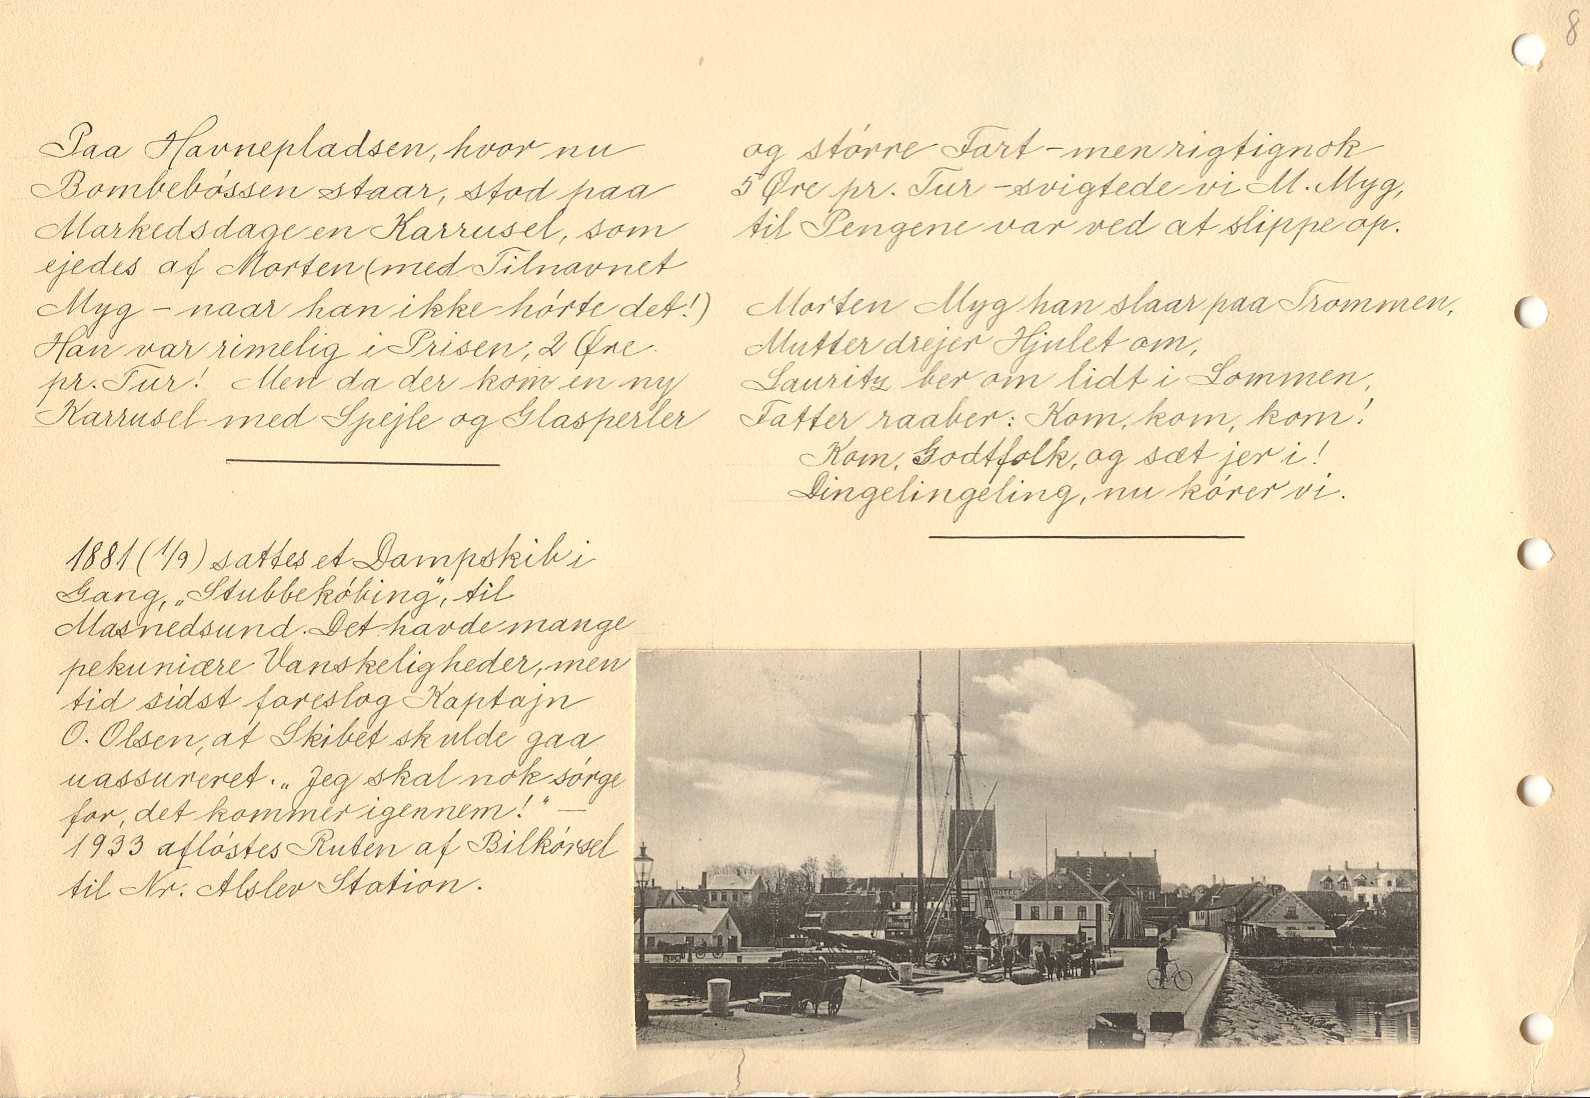 8
Paa Havnepladsen, hvor nu
Bombebóssen staar, stod paa
Markedsdage en Karrusel, som
ejedes af Morten (med Tilnavnet
Myg - naar han ikke hórte det!)
Han var rimelig i Prisen, 2 Øre
pr. Tur! Men da der kom en ny
Karrusel med Spejle og Glasperler
og stórre Fart - men rigtignok
5 Øre pr. Tur - svigtede vi M. Myg,
til Pengene var ved at slippe op.
Morten Myg han slaar paa Trommen,
Mutter drejer Hjulet om,
Lauritz ber om lidt i Lommen,
Fatter raaber: Kom, kom, kom!
Kom, Godtfolk, og sæt jer i!
Dingelingeling, nu kórer vi.
1881 (1/9) sattes et Dampskib i
Gang, „Stubbekóbing", til
Masnedsund. Det havde mange
pekuniære Vanskeligheder, men
tid sidst foreslog Kaptajn
O. Olsen, at Skibet skulde gaa
uassureret. „Jeg skal nok sórge
for, det kommer igennem!" -
1933 aflóstes Ruten af Bilkórsel
til Nr. Alslev Station.